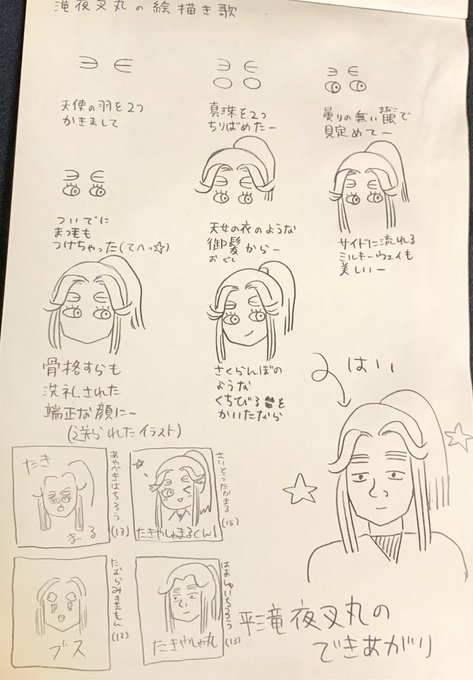 滝夜叉丸の絵描き歌
天使の羽を2つ
かきまして
真珠を2つ
ちりばめたー
曇りの無い眼で
まなこ
見定めてー
ついでに
まつ毛も
つけちゃった(てへっ☆)
天女の衣のような
御髪からー
おぐし
サイドに流れる
ミルキーウェイも
美しいー
骨格すらも
洗礼された
端正な顔にー
さくらんぼの
ような
くちびるを
かいたなら
はい
(送られたイラスト)
たき
まる
あやべきはちろう
(13)
たきやしゃまるくん!
さいとうたかまる
(15)
ブス
たむらみきえもん
(13)
たきやしゃ丸
(13)
平滝夜叉丸の
できあがり